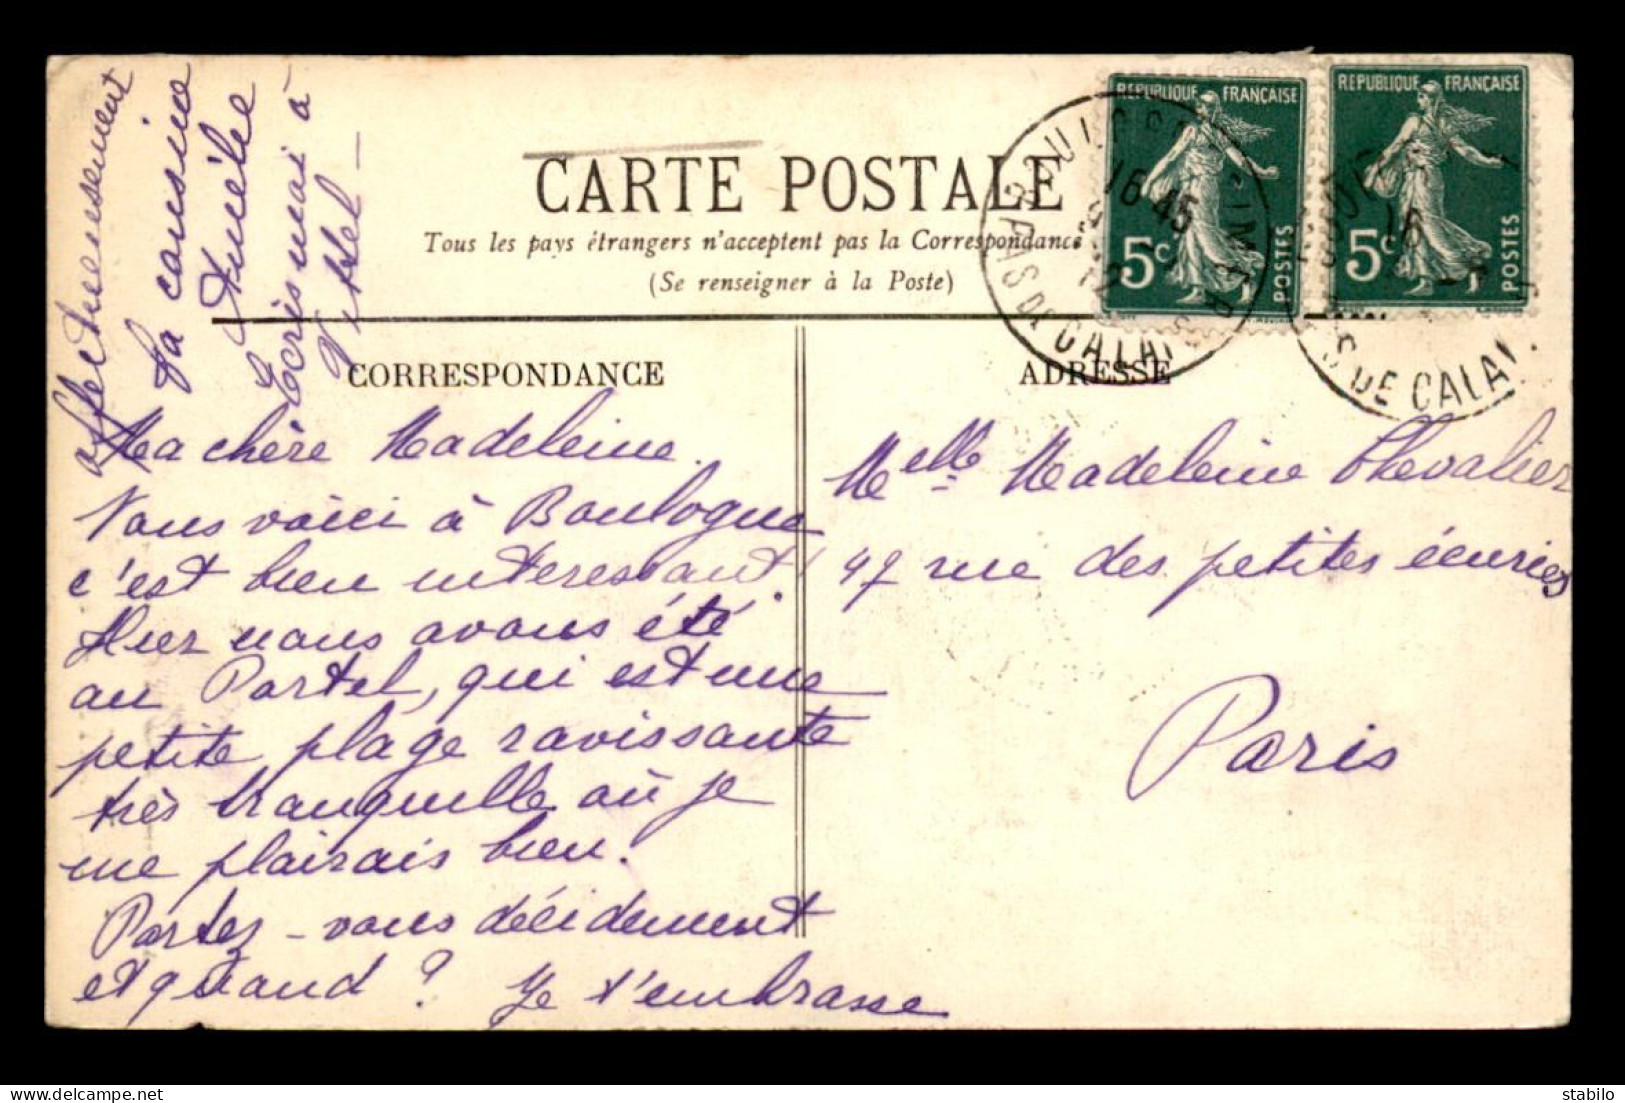 CARTE POSTALE
Tous les pays étrangers n'acceptent pas la Correspondance
(Se renseigner à la Poste)
CORRESPONDANCE
ADRESSE
REPUBLIQUE FRANÇAISE
5c
POSTES
REPUBLIQUE FRANÇAISE
5c
POSTES
16 45
12
PAS DE CALAIS
16
DE CALAI
Ma chère Madeleine
Nous voici à Boulogne
c'est bien interessant!
Hier nous avons été
au Portel, qui est une
petite plage ravissante
très tranquille où je
me plairais bien.
Partez-vous décidement
et quand? Je t'embrasse
affectueusement
Ta cousine
Ecris moi à
Vittel
Melle Madeleine Chevalier
47 rue des petites écuries
Paris
stabilo